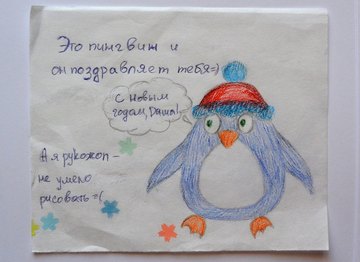 Это пингвин и
он поздравляет тебя=)
С новым
годом, Даша!
А я рукожоп -
не умею
рисовать =(